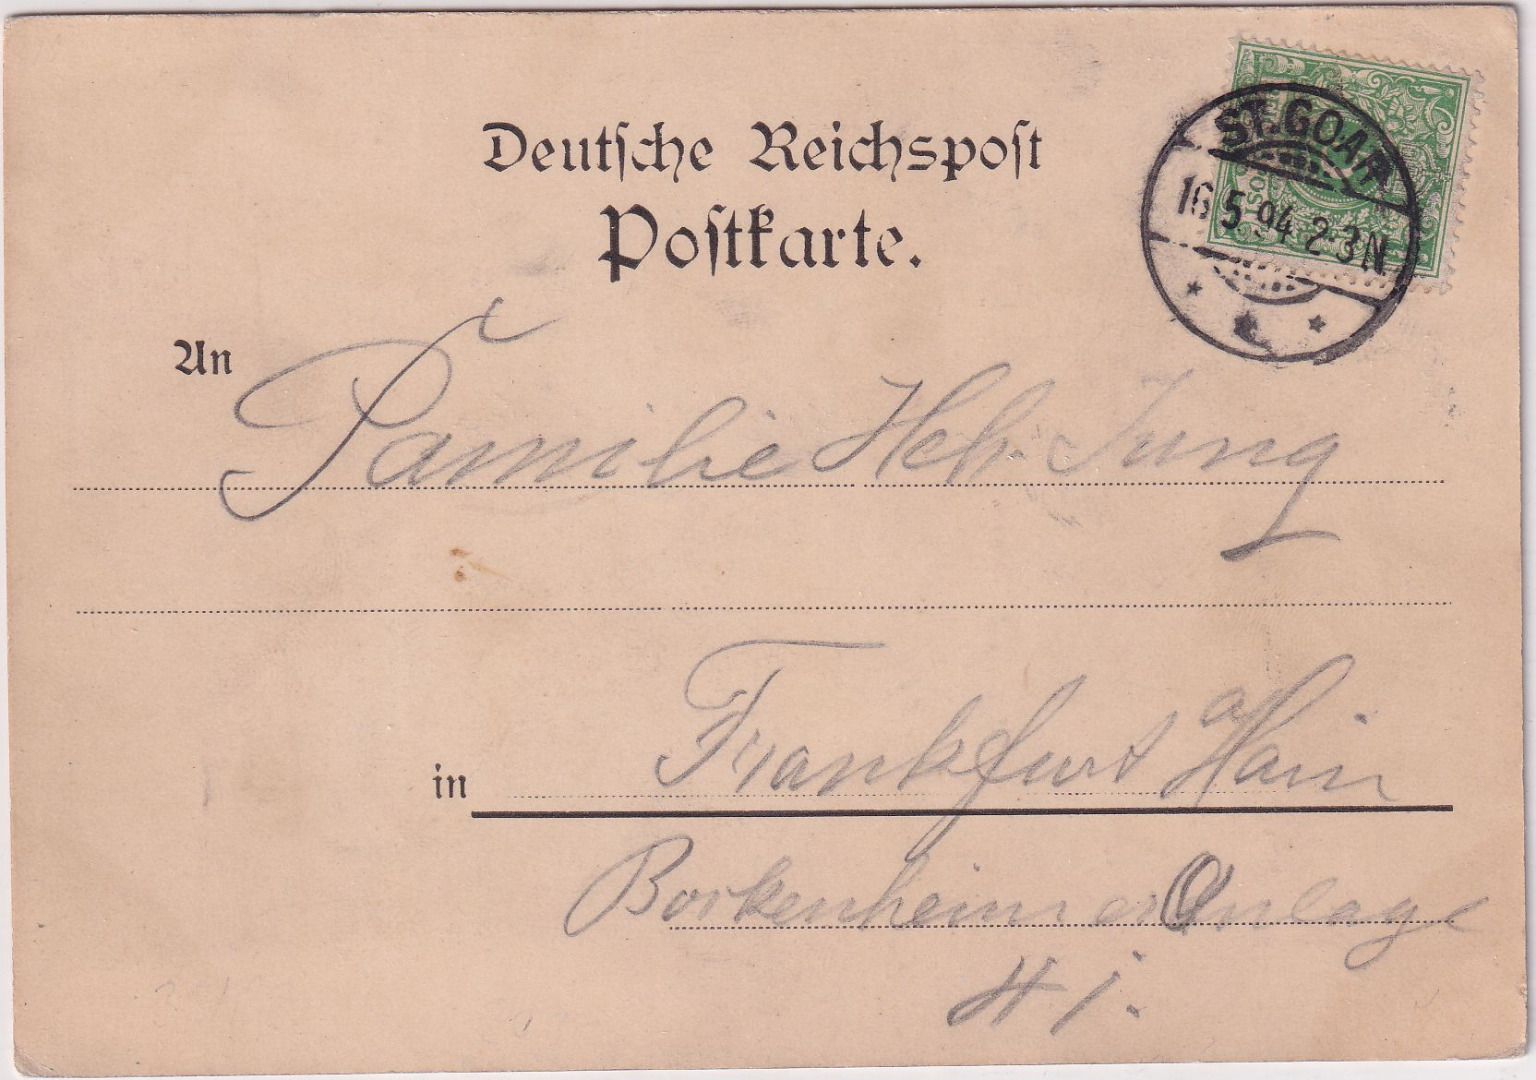 Deutsche Reichspost
Postkarte.
ST. GOAR
16 5 94 2-3N
An
Familie Hch. Jung
in
Frankfurt a Main
Bockenheimer Anlage